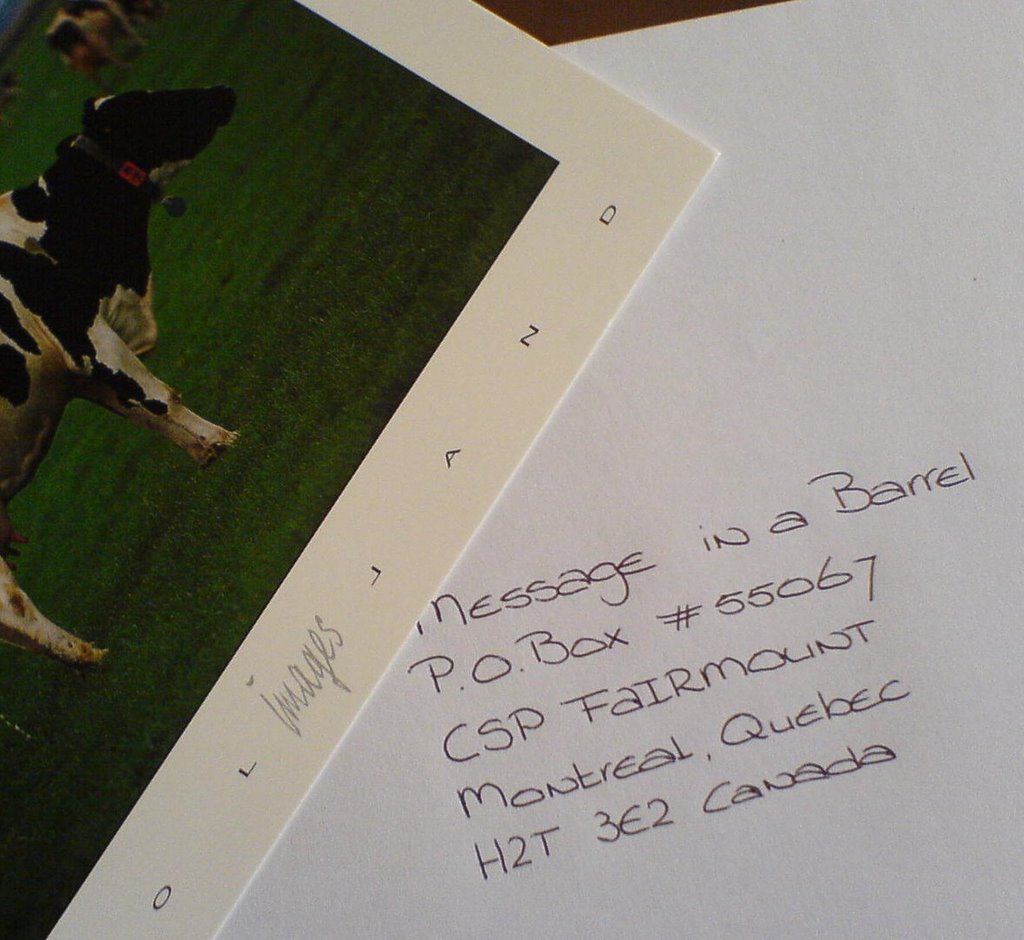 O L J A N D
images
Message in a Barrel
P.O. Box #55067
CSP FAIRMOUNT
Montreal, Quebec
H2T 3E2 Canada